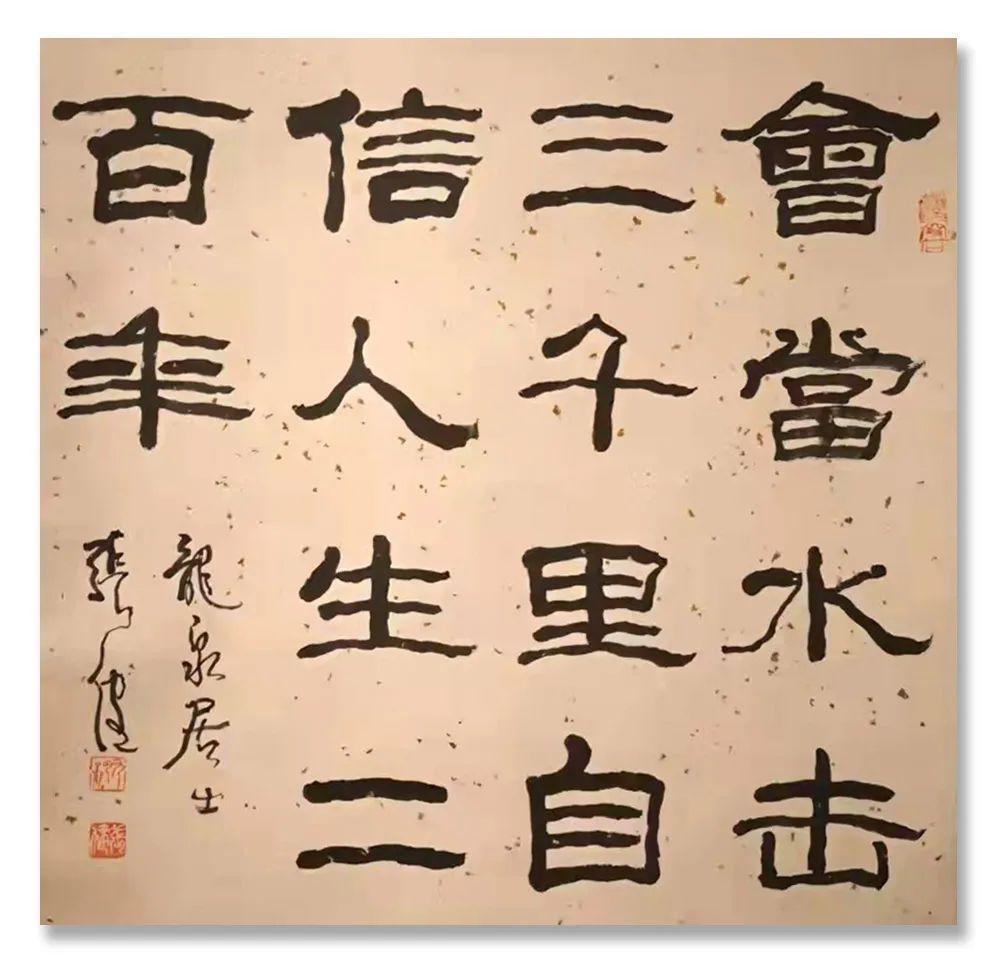 會當水击
三千里自
信人生二
百年
龍泉居士
張